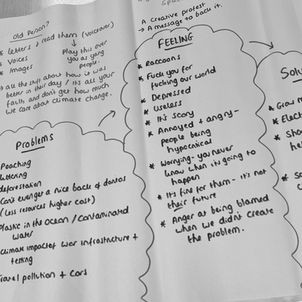 Old Person?
* Letters & read them (voiceover)
* Voices
* Images
Play this over
you as young
people.
all the shit about how is was
better in their day / it's all your
fault, and don't get how much
we care about climate change.
A creative protest
+ A message to back it.
FEELING
* Raccoons
* Fuck you for
fucking our world
* Depressed
* Useless
* It's scary
* Annoyed + angry-
people being
hypocritical
* Worrying- you never
know when it's going to
happen
* It's fine for them - it's not
their future
* Anger at being blamed
when we didn't create
the problem.
Problems
Poaching
littering
deforestation
(less resources higher cost)
Plastic in the ocean / contaminated
water
climate impact of war infrastructure +
testing
travel pollution + cars
Solu
* Grow
* Elect